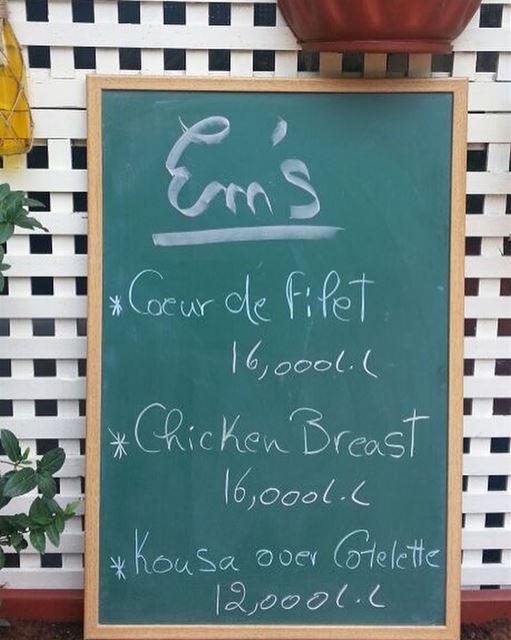 Em's
*Coeur de filet
16,000L.L
*Chicken Breast
16,000L.L
*Kousa over Cotelette
12,000L.L